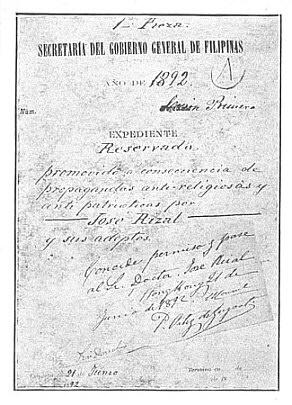 1ª Pieza.
SECRETARÍA DEL GOBIERNO GENERAL DE FILIPINAS
AÑO DE 1892
A
Sección Primera
Núm.
EXPEDIENTE
Reservado
promovido á consecuencia de
propagandas anti-religiosas y
anti patrioticas por
José Rizal
y sus adeptos.
Concede permiso y pase
al Sr. Doctor José Rizal
Hong Kong 21 de
Junio de 1892
P. Ortiz de
21 de Junio
92
Termina en de
de 18